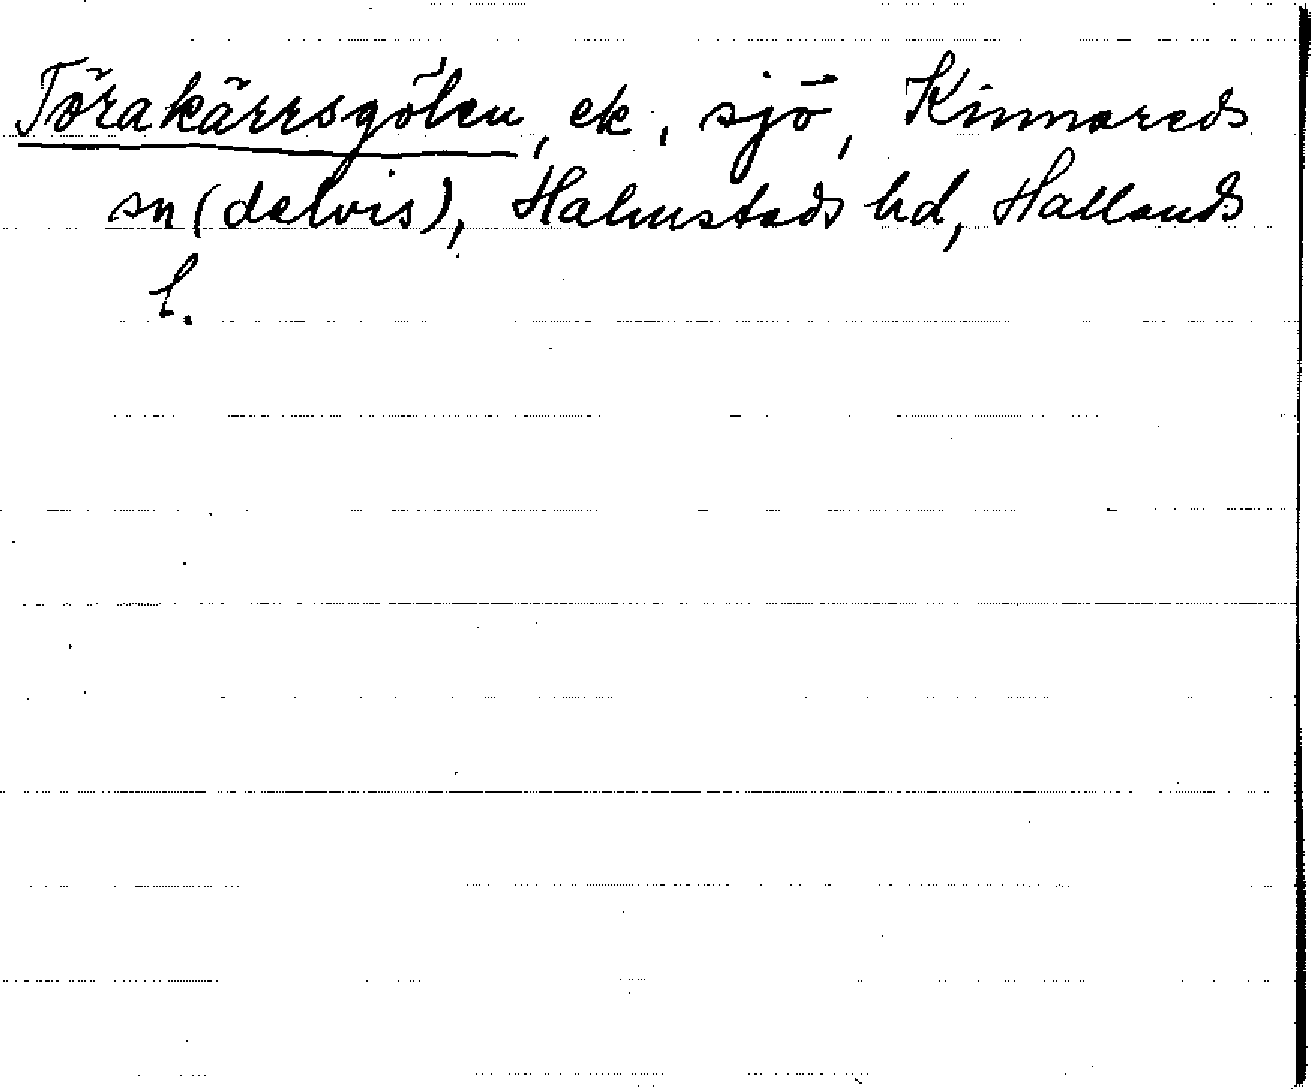 Törakärrsgölen, ek., sjö, Kinnareds
sn (delvis), Halmstads hd, Hallands
l.